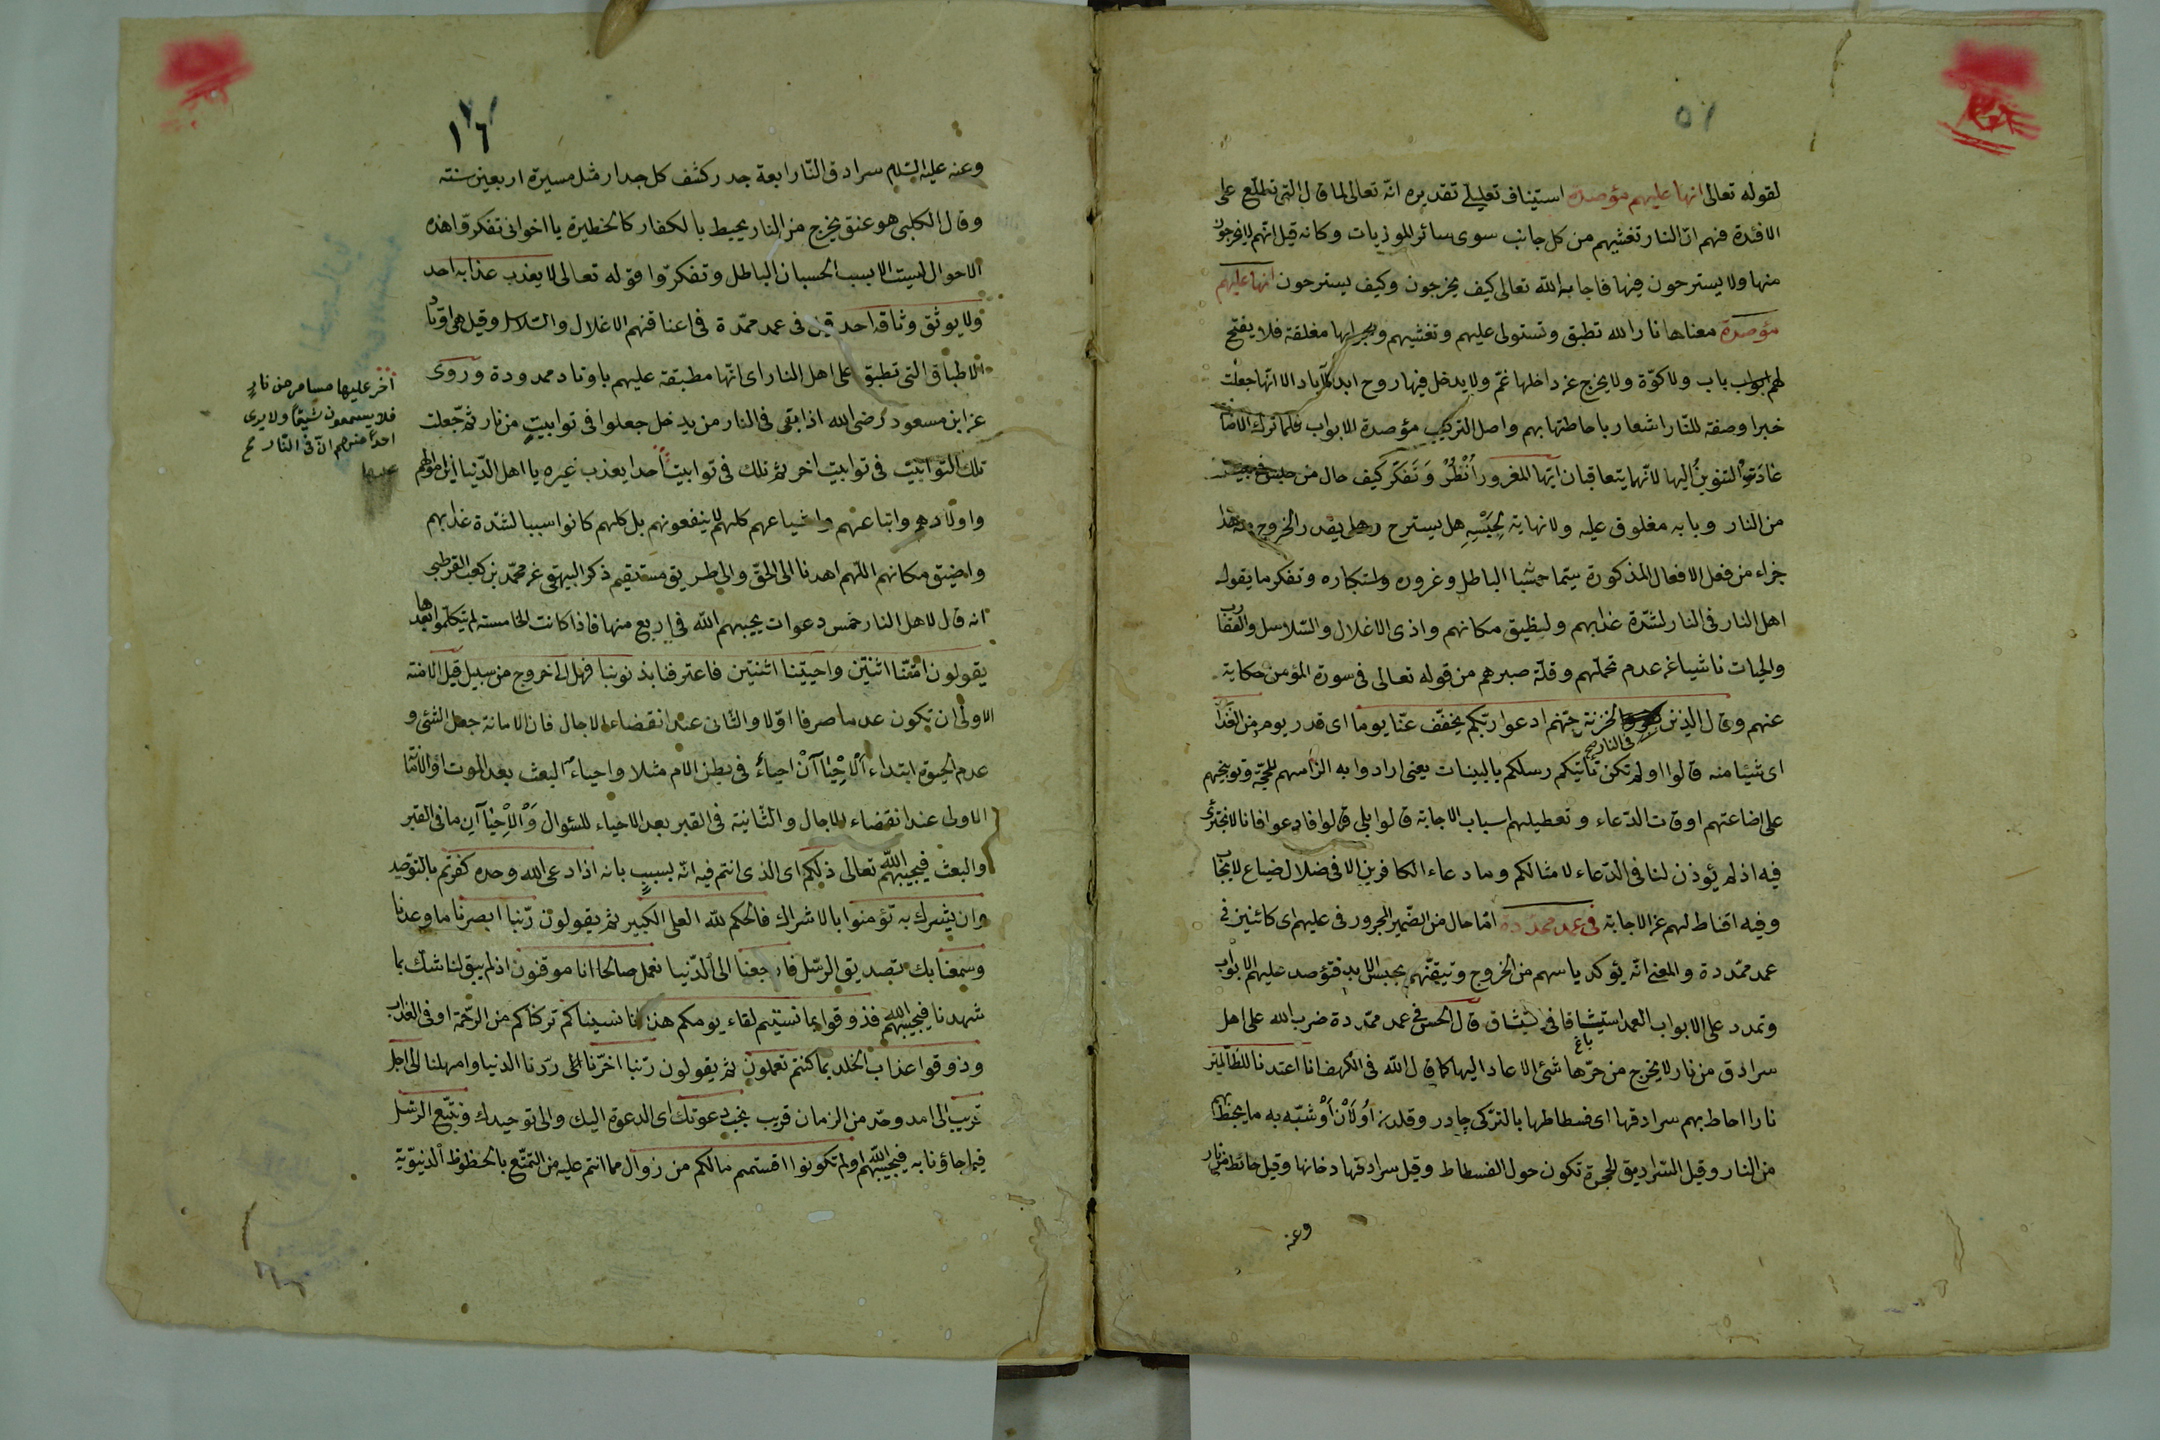 لقوله تعالى انها عليهم مؤصدة استيناف تعليلے تقديره انّه تعالى لما قال التى تطلّع على
الافئدة فهم انّ النار تغشيهم من كل جانب سوى سائر الموذيات وكانه قيل انّهم لا يخرجون
منها ولا يسترحون فيها فاجاب الله تعالى كيف يخرجون وكيف يسترحون انها عليهم
مؤصدة معناها نار الله تطبق وتستولى عليهم وتغشيهم وابوابها مغلقة فلا يفتح
لهم ابواب باب ولا كوّة ولا يخرج عن داخلها غمّ ولا يدخل فيها روح ابد الآباد الا انّها جعلت
خبرا وصفة للنّار اشعار باحاطتها بهم واصل التركيب مؤصدة الابواب فلما ترك الاضا
عادت التنوين اليها لانّهما يتعاقبان ايّها المغرور اُنْظُرْ وَتَفَكّر كيف حال من حبس فى بيت
من النار وبابه مغلوق عليه ولا نهاية لِحَبْسِهِ هل يسترح وهل يقدر الخروج هذا
جزاء من فعل الافعال المذكورة سيّما حسّبا الباطل وغروره واستكباره وتفكر ما يقوله
اهل النار فى النار لشدّة عذابهم ولتظيق مكانهم واذى الاغلال والسّلاسل والعقارب
والحيات ناشيا عن عدم تحمّلهم وقلّة صبرهم من قوله تعالى فى سورة المؤمن حكاية
عنهم وقال الذين فى النار صح لخزنة جهّنم ادعوا ربّكم يخفّف عنّا يوما اى قدر يوم من العَذَاب
اى شيئا منه قالوا اولم تكن تأتيكم رسلكم بالبينات يعنى ارادوا به الزامهم للحجّة وتوبيخهم
على اضاعتهم اوقات الدّعاء وتعطيلهم اسباب الاجابة قالوا بلى قالوا فادعوا فانا لا نجترئ
فيه اذ لم يؤذن لنا فى الدّعاء لامثالكم وما دعاء الكافرين الا فى ضلال ضياع لا يجاب
وفيه اقناط لهم عن الاجابة فى عمد ممدّدة امّا حال من الضّمير المجرور فى عليهم اى كائنين فى
عمد ممّددة والمعنى انّه يؤكد ياسهم من الخروج وتيقّنهم بحبس الابد فتؤصد عليهم الابواب
وتمدد على الابواب العمد استيثاقا فى استيثاق قال الحسن فى عمد ممّددة ضرب الله على اهل
سرادق من نار لا يخرج من حرّها شئ الا عاد اليها كما قال الله فى الكهف انا اعتدنا للظّالمين
نارا احاط بهم سرادقها اى فسطاطها بالتركى چادر وقلد اُولاَنْ اَوْ شبّه به ما يحيط بهم
من النار وقيل السّراديق الحجرة تكون حول الفسطاط وقيل سرادقها دخانها وقيل حائط من نار
وعنه
وعنه عليه السّلام سرادق النّار اربعة جدر كثف كل جدار مثل مسيرة اربعين سنته
وقال الكلبى هو عنق يخرج من النار يحيط بالكفار كالحظيرة يا اخوانى تفكرّوا هذه
الاحوال ليست الا بسبب الحسبان الباطل وتفكرّوا قوله تعالى لا يعذب عذابه احد
ولا يوثق وثاقه احد قيل فى عمد ممّدة فى اعناقهم الاغلال والسّلاسل وقيل هى اوتاد
الاطباق التى تطبق على اهل النار اى انّها مطبقة عليهم باوتاد ممدودة وروى
عن ابن مسعود رضى الله اذا بقى فى النار من يدخل جعلوا فى توابيتٍ من نار ثمّ جعلت
تلك التوابيت فى توابيت اخر ثم تلك فى توابيت احدا يعذب غيره يا اهل الدّنيا اين اموالهم
واولادهم واتباعهم واشياعهم كلهم لا ينفعونهم بل كلهم كانوا سببا لشدّة عذابهم
واضيق مكانهم اللّهم اهدنا الى الحقّ والى طريق مستقيم ذكر البيهقى عن محمّد بن كعب القرظى
انه قال لاهل النار خمس دعوات يجيبهم اللّه فى اربع منها فاذا كانت الخامسه لم يتكلّموا بعدها
يقولون امتّنا اثنتين واحييّنا اثنتين فاعترفنا بذنوبنا فهل الى خروج من سبيل قيل الاماتة
الاولى ان تكون عدما صرفا اوّلا والثّانى عند انقضاء الاجال فان الاماتة جعل الشئى و
عدم الحيوة ابتداء اَلْاِحْيَآآنْ احياءٌ فى بطن الام مثلا واحياءٌ البعث بعد الموت او الامتا
الاولى عند انقضاء للاجال والثّانية فى القبر بعد الاحياء للسّؤال وَالْاِحْيَاآنِ ما فى القبر
والبعث فيجيبهم اللّه تعالى ذلكم اى الذى انتم فيه انّه بسببٍ بانه اذا دعى الله وحده كفرتم بالتوّحيد
وان يشرك به تؤمنوا بالاشراك فالحكم للّه العلى الكبير ثم يقولون ربّنا ابصرنا ما وعدنا
وسمعنا بك بتصديق الرّسل فارجعنا الى الدّنيا نعمل صالحا انا موقنون اذ لم يبق لنا شكّ بما
شهدنا فيجيبهم الله فذوقوا بما نسيتم لقاء يومكم هذا انا نسيناكم تركناكم من الرّحمة او فى العذاب
وذوقوا عذاب الخلد بما كنتم تعملون ثم يقولون ربّنا اخّرنا الى رّدنا الدنيا وامهلنا الى اجل
قريب الى امد وحدّ من الزمان قريب نجب دعوتك اى الدعوة اليك والى توحيدك ونتبّع الرسل
فيما جاؤنا به فيجيبهم اللّه اولم تكونوا اقسمتم مالكم من زوال مما انتم عليه من التمتّع بالحظوظ الدنيوّية
اخر عليها مسامر من نارٍ
فلا يسمعون شيئا ولا يرى
احد منهم انّ فى النّار صح
١٦